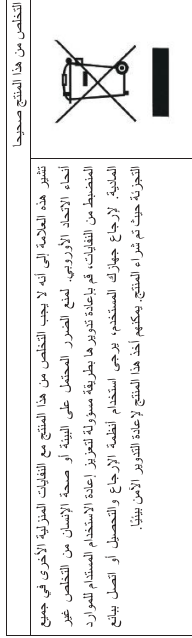 التخلص من هذا المنتج صحيحا
تشير هذه العلامة إلى أنه لا يجب التخلص من هذا المنتج مع النفايات المنزلية الأخرى في جميع
أنحاء الاتحاد الأوروبي. لمنع الضرر المحتمل على البيئة أو صحة الإنسان من التخلص غير
المنضبط من النفايات، قم بإعادة تدويرها بطريقة مسؤولة لتعزيز إعادة الاستخدام المستدام للموارد
المادية. لإرجاع جهازك المستخدم، يرجى استخدام أنظمة الإرجاع والتحصيل أو اتصل ببائع
التجزئة حيث تم شراء المنتج. يمكنهم أخذ هذا المنتج لإعادة التدوير الآمن بيئيًا.